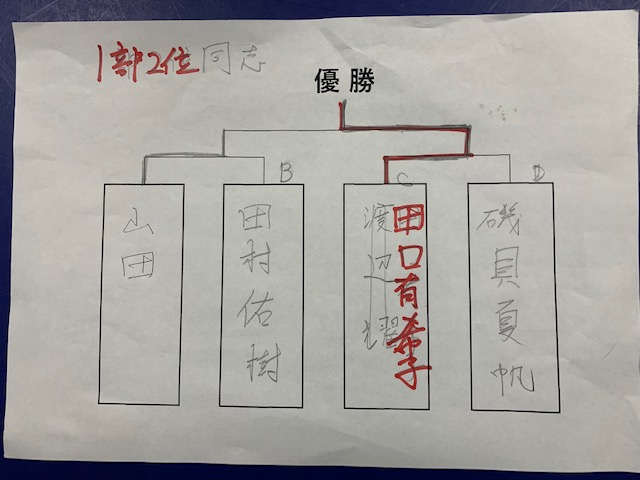 1部2位同志
優勝
B
C
D
山田
田村佑樹
渡辺耀
田口有希子
磯貝夏帆